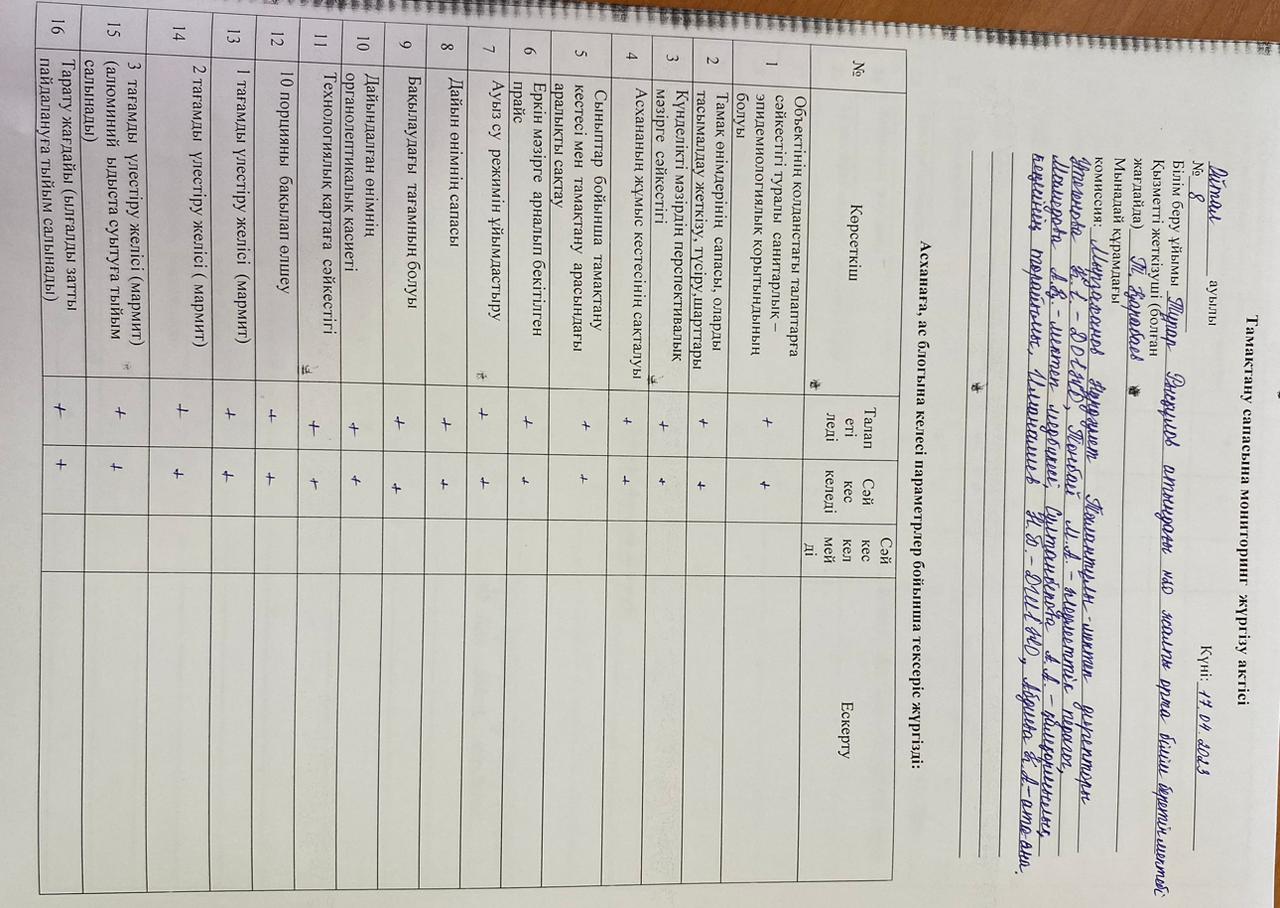 Тамақтану сапасына мониторинг жүргізу актісі
Күні: 17.04.2023
Ойтал ауылы
№ 8
Білім беру ұйымы Тұрар Рысқұлов атындағы №8 жалпы орта білім беретін мектебі
Қызметті жеткізуші (болған
жағдайда) Т. Қарабаев
Мынадай құрамдағы
комиссия: Мырзаханов Нұрдәулет -мектеп директоры
К.І - ДОІЖО, М.А. - әлеуметтік педагог,
Мамедова А.Қ. - мектеп медбикесі, Сұлтанбекова А.А. - қамқоршылық
кеңесінің төрайымы, Н.Б. - ДШІЖО, Абдиева К.А-ата-ана.
Асханаға, ас блогына келесі параметрлер бойынша тексеріс жүргізді:
№ Көрсеткіш Талап етіледі Сәйкес келеді Сәйкес келмейді Ескерту
1 Объектінің қолданстағы талаптарға
сәйкестігі туралы санитарлық –
эпидемиологиялық қорытындының
болуы + +
2 Тамақ өнімдерінің сапасы, оларды
тасымалдау жеткізу, түсіру,шарттары + +
3 Күнделікті мәзірдің перспективалық
мәзірге сәйкестігі + +
4 Асхананың жұмыс кестесінің сақталуы + +
5 Сыныптар бойынша тамақтану
кестесі мен тамақтану арасындағы
аралықты сақтау + +
6 Еркін мәзірге арналып бекітілген
прайс + +
7 Ауыз су режимін ұйымдастыру + +
8 Дайын өнімнің сапасы + +
9 Бақылаудағы тағамның болуы + +
10 Дайындалған өнімнің
органолептикалық қасиеті + +
11 Технологиялық картаға сәйкестігі + +
12 10 порцияны бақылап өлшеу + +
13 1 тағамды үлестіру желісі (мармит) + +
14 2 тағамды үлестіру желісі ( мармит) + +
15 3 тағамды үлестіру желісі (мармит)
(алюминий ыдыста суытуға тыйым
салынады) + +
16 Тарату жағдайы (ылғалды затты
пайдалануға тыйым салынады) + +